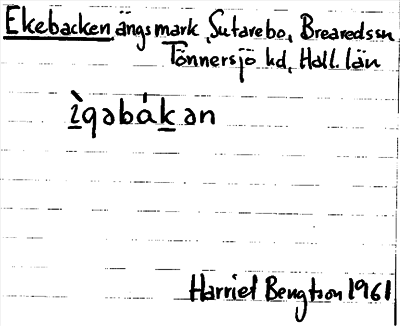 Ekebacken ängsmark, Sutarebo, Breareds sn
Tönnersjö hd, Hall. län
ì̲qəbák̲ən
Harriet Bengtson 1961